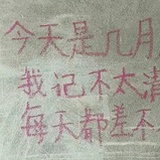 今天是几月
我记不太清
每天都差不